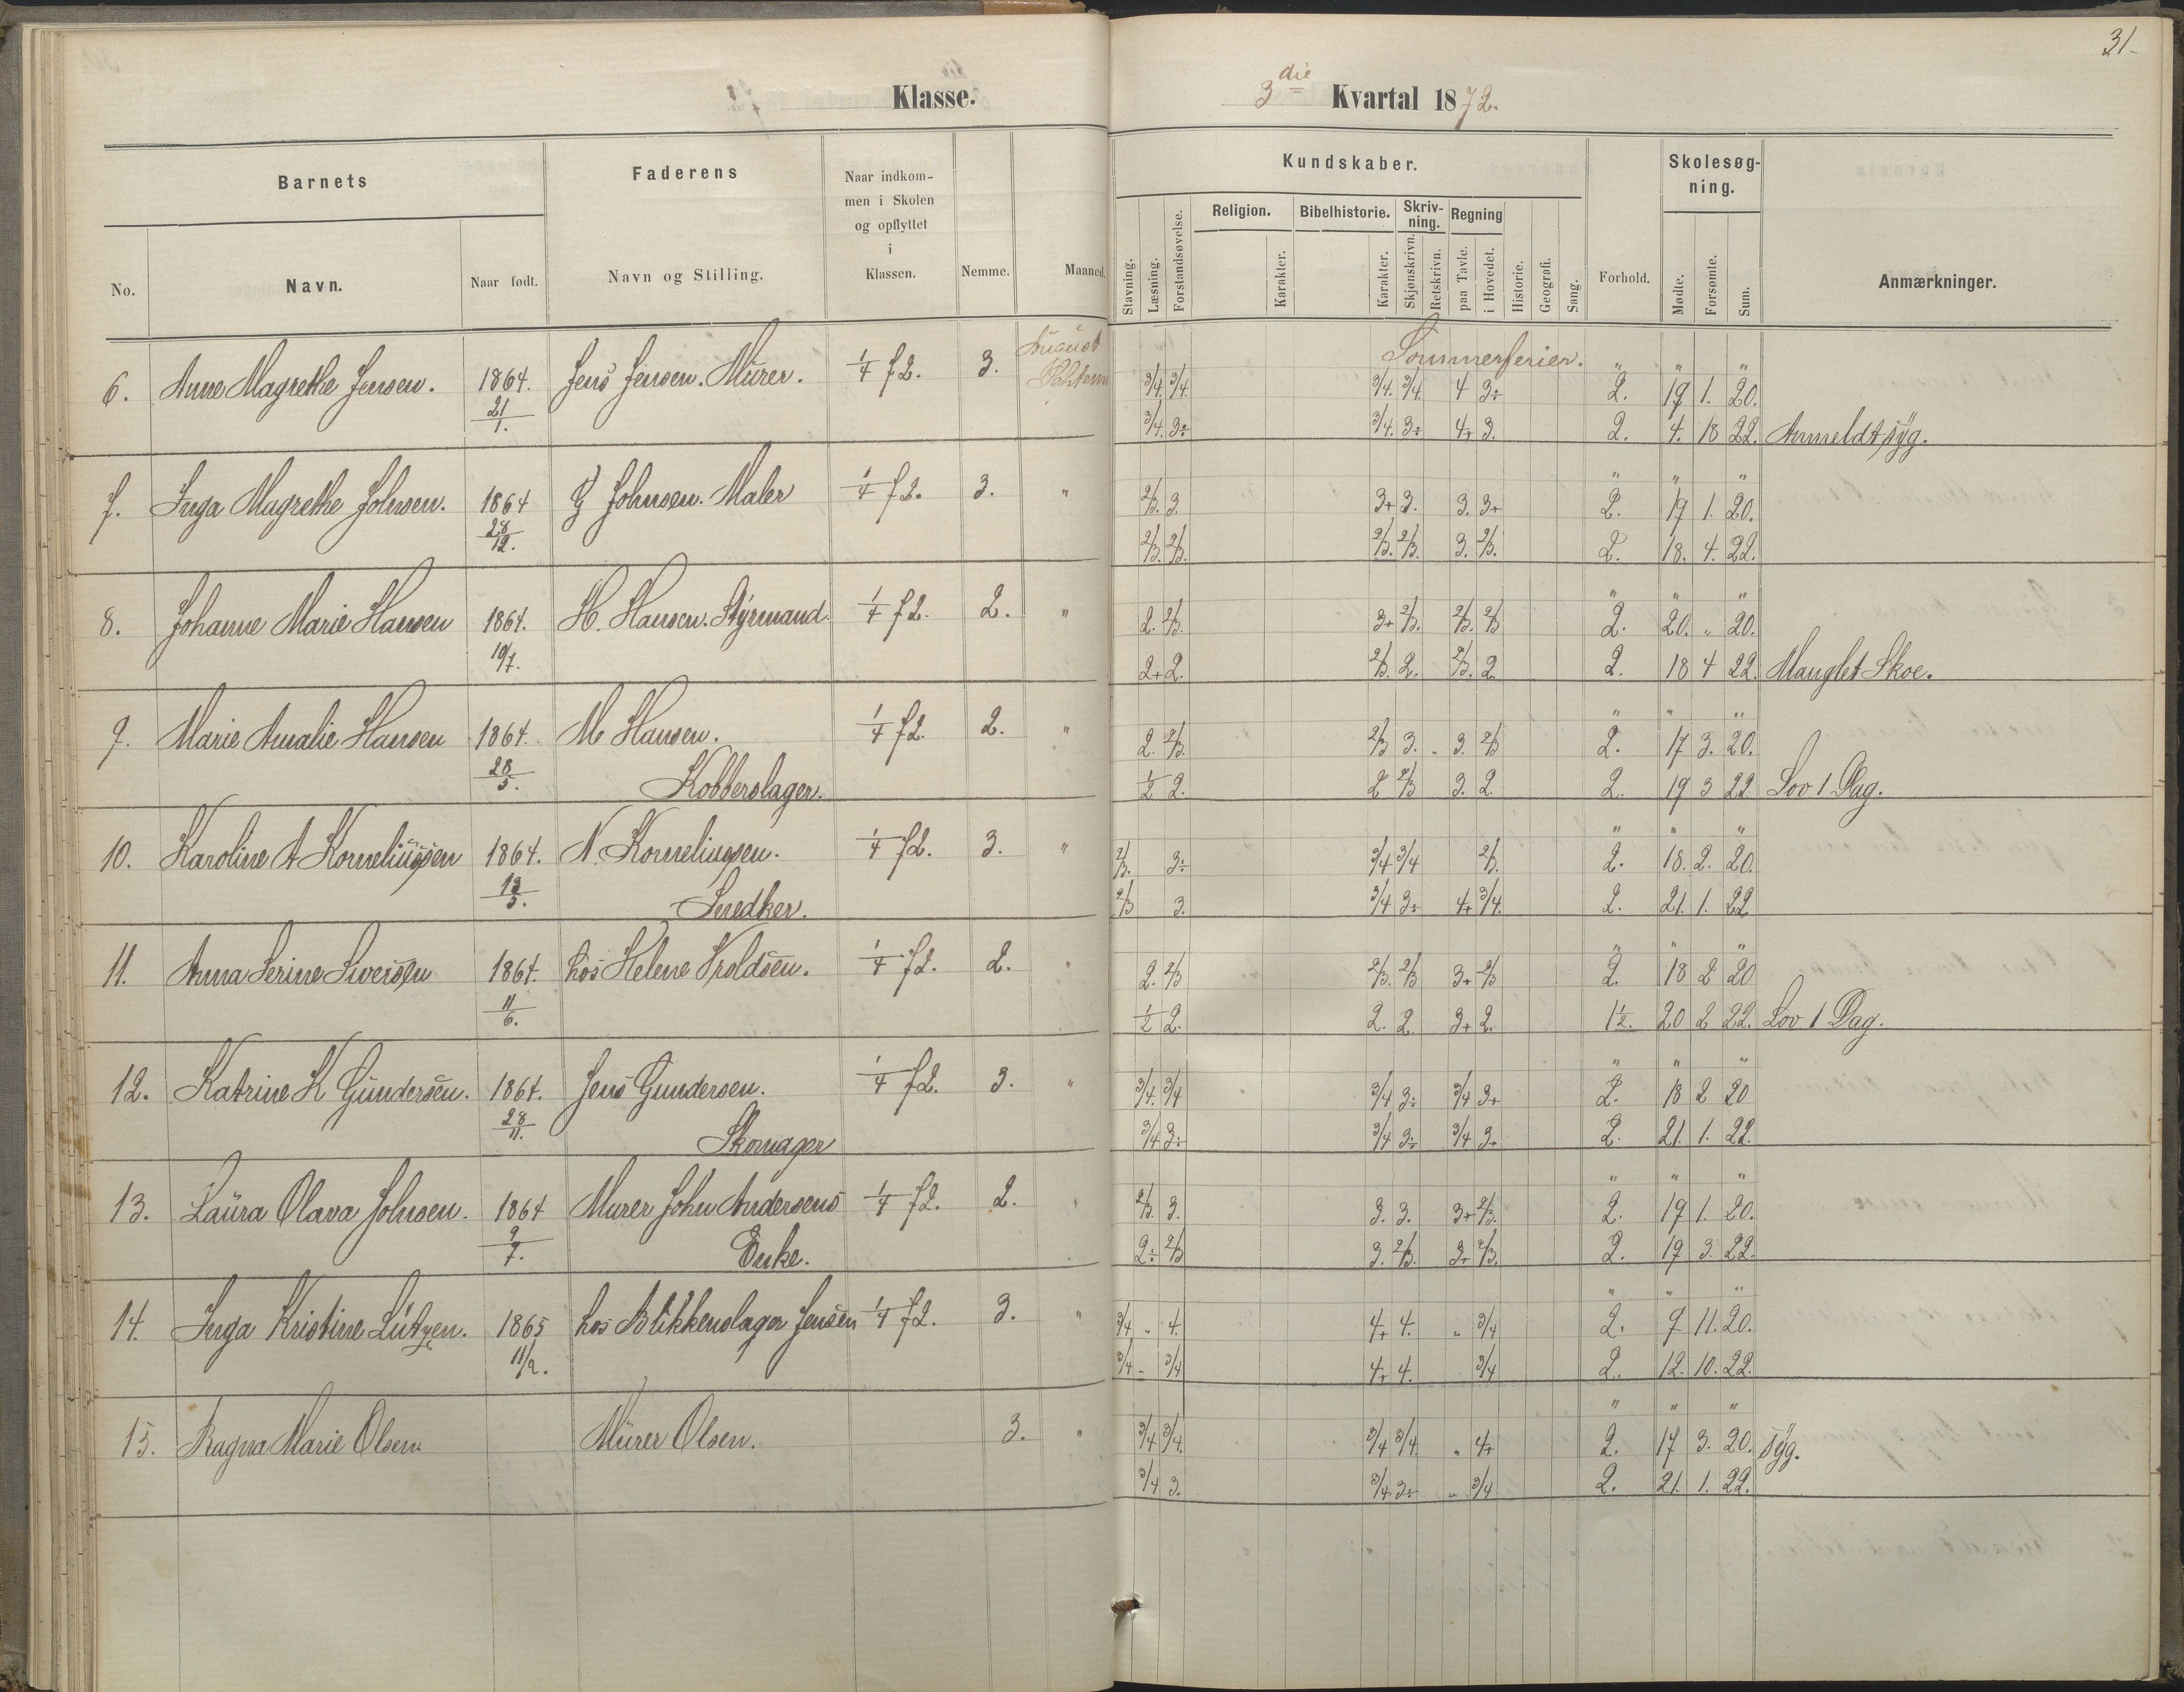 31.
Klasse.
3die Kvartal 1872.
Barnets
Faderens
Naar indkom-
men i Skolen
og opflyttet
i
Klassen.
Nemme.
Maaned.
No.
Navn.
Naar født.
Navn og Stilling.
Kundskaber.
Skolesøg-
ning.
Religion. Bibelhistorie. Skriv-
ning. Regning
Stavning. Læsning. Forstandsøvelse. Karakter. Karakter. Skjønskrivn. Retskrivn. paa Tavle. i Hovedet. Historie. Geografi. Sang. Forhold. Mødte. Forsømte. Sum. Anmærkninger.
August Sommerferier. " " "
6. Anne Magrethe Jensen. 1864. Jens Jensen. Murer. 1/4 72. 3. 3/4. 3/4. 3/4. 3/4. 4 3÷ 2. 19 1. 20.
21/1. 3/4. 3÷ 3/4. 3÷ 4+ 3. 2. 4. 18 22. Anmeldt syg.
" " "
7. Inga Magrethe Johnsen. 1864 G Johnsen. Maler 1/4 72. 3. " 2/3. 3. 3+ 3. 3. 3+ 2. 19 1. 20.
28/12. 2/3. 2/3. 2/3. 2/3. 3. 2/3. 2. 18. 4. 22.
" " "
8. Johanne Marie Hansen 1864. H. Hansen. Styrmand. 1/4 72. 2. " 2. 2/3. 3+ 2/3. 2/3. 2/3 2. 20. " 20.
19/7. 2+ 2. 2/3. 2. 2/3. 2. 2. 18 4 22. Manglet Skoe.
" " "
9. Marie Amalie Hansen 1864. M Hansen. 1/4 72. 2. " 2. 2/3. 2/3 3. " 3. 2/3 2. 17 3. 20.
28/5. Kobberslager. 1/2 2. 2 2/3 3. 2. 2. 19 3 22 Lov 1 Dag.
" " "
10. Karoline A Korneliussen 1864. N. Korneliussen. 1/4 72. 3. " 2/3. 3÷ 3/4 3/4 2/3. 2. 18. 2. 20.
13/5. Snedker. 2/3 3. 3/4 3÷ 4+ 3/4. 2. 21. 1. 22
" " "
11. Anna Serine Siversen 1864. hos Helene Troldsen. 1/4 72. 2. " 2. 2/3 2/3. 2/3 3+ 2/3 2. 18 2 20
11/6. 1/2 2. 2. 2. 3+ 2. 1 1/2. 20 2 22. Lov 1 Dag.
" " "
12. Katrine K Gundersen. 1864. Jens Gundersen. 1/4 72. 3. " 3/4. 3/4 3/4 3÷ 3/4 3+ 2. 18 2 20
28/11. Skomager 3/4 3÷ 3/4 3÷ 3/4 3+ 2. 21. 1. 22.
" " "
13. Laura Olava Johnsen. 1864 Murer John Andersens 1/4 72. 2. " 2/3. 3. 3. 3. 3+ 2/3. 2. 19 1. 20.
9/7. Enke. 2÷ 2/3 3. 2/3. 3+ 2/3. 2. 19 3. 22.
" " "
14. Inga Kristine Lützen. 1865 hos Blikkenslager Jensen 1/4 72. 3. " 3/4 " 4. 4+ 4. " 3/4 2. 9 11. 20.
11/2. 3/4 - 3/4 4+ 4. 3/4 2. 12. 10. 22.
" " "
15. Ragna Marie Olsen. Murer Olsen. 3. " 3/4 3/4. 3/4 3/4. " 4+ 2. 17 3. 20. syg.
3/4 3. 3/4. 3÷ " 3/4 2. 21. 1. 22.